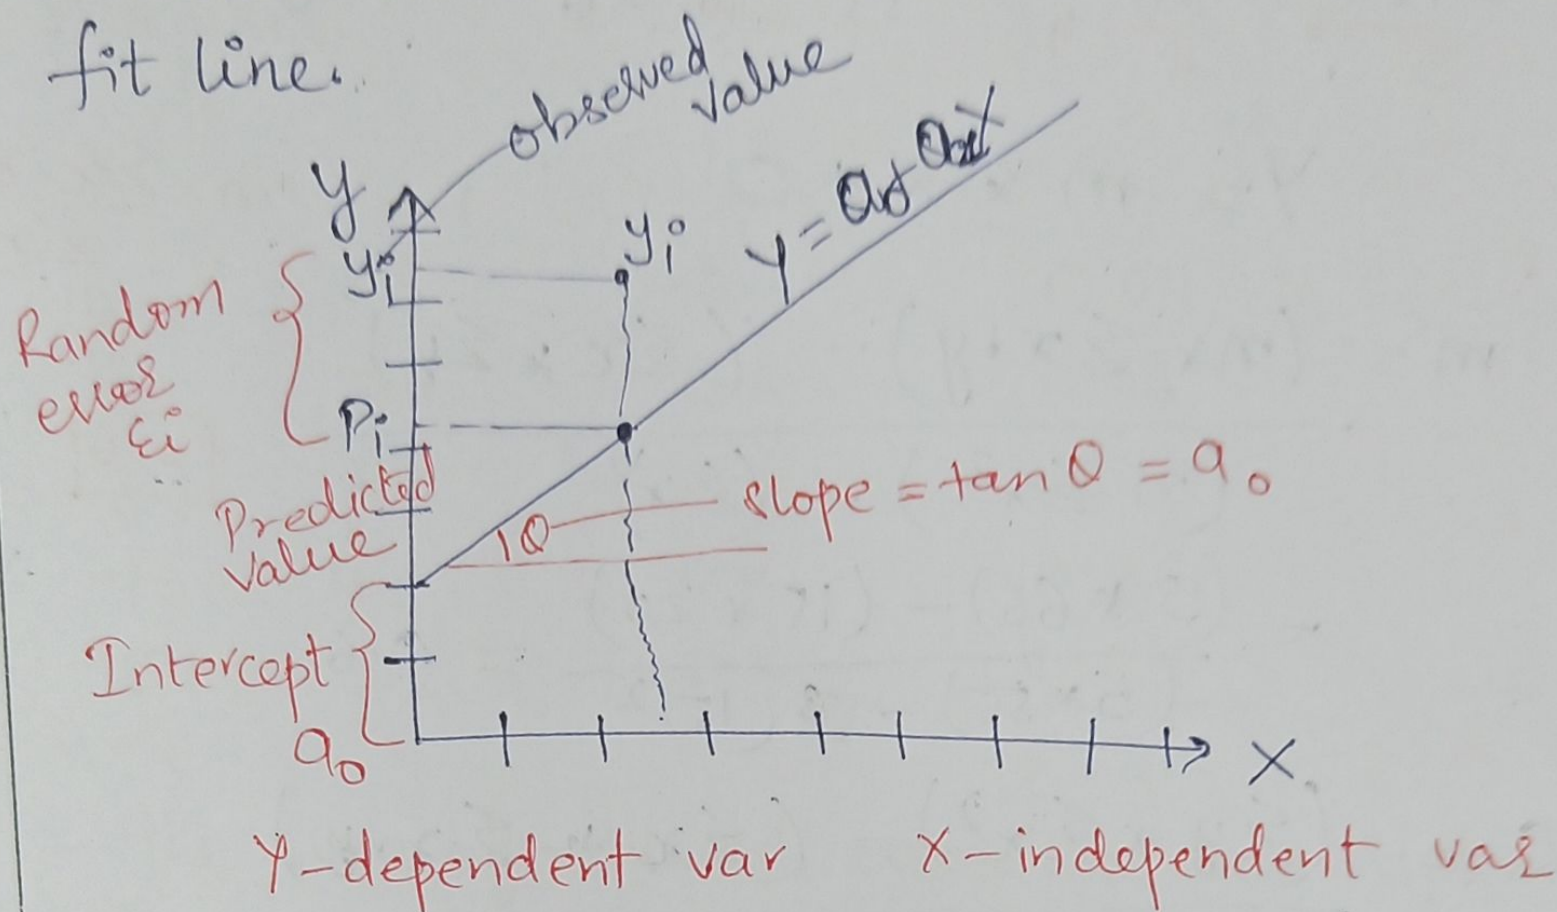 fit line.
observed
value
Y
yi
yi
Random
error
εi
Pi
Predicted
value
slope = tan θ = a0
θ
Intercept
a0
X
Y-dependent var
X-independent var